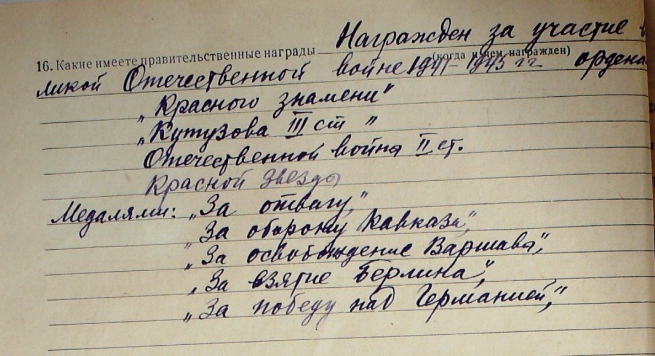 Награжден за участие в
16. Какие имеете правительственные награды
(когда и чем награжден)
ликой Отечественной войне 1941-1945 гг ордена
„Красного знамени"
„Кутузова III ст "
Отечественной война II ст.
Красной Звезды
Медалями: „За отвагу",
„За оборону Кавказа",
„За освобождение Варшава",
„За взятие Берлина",
„За победу над Германией",